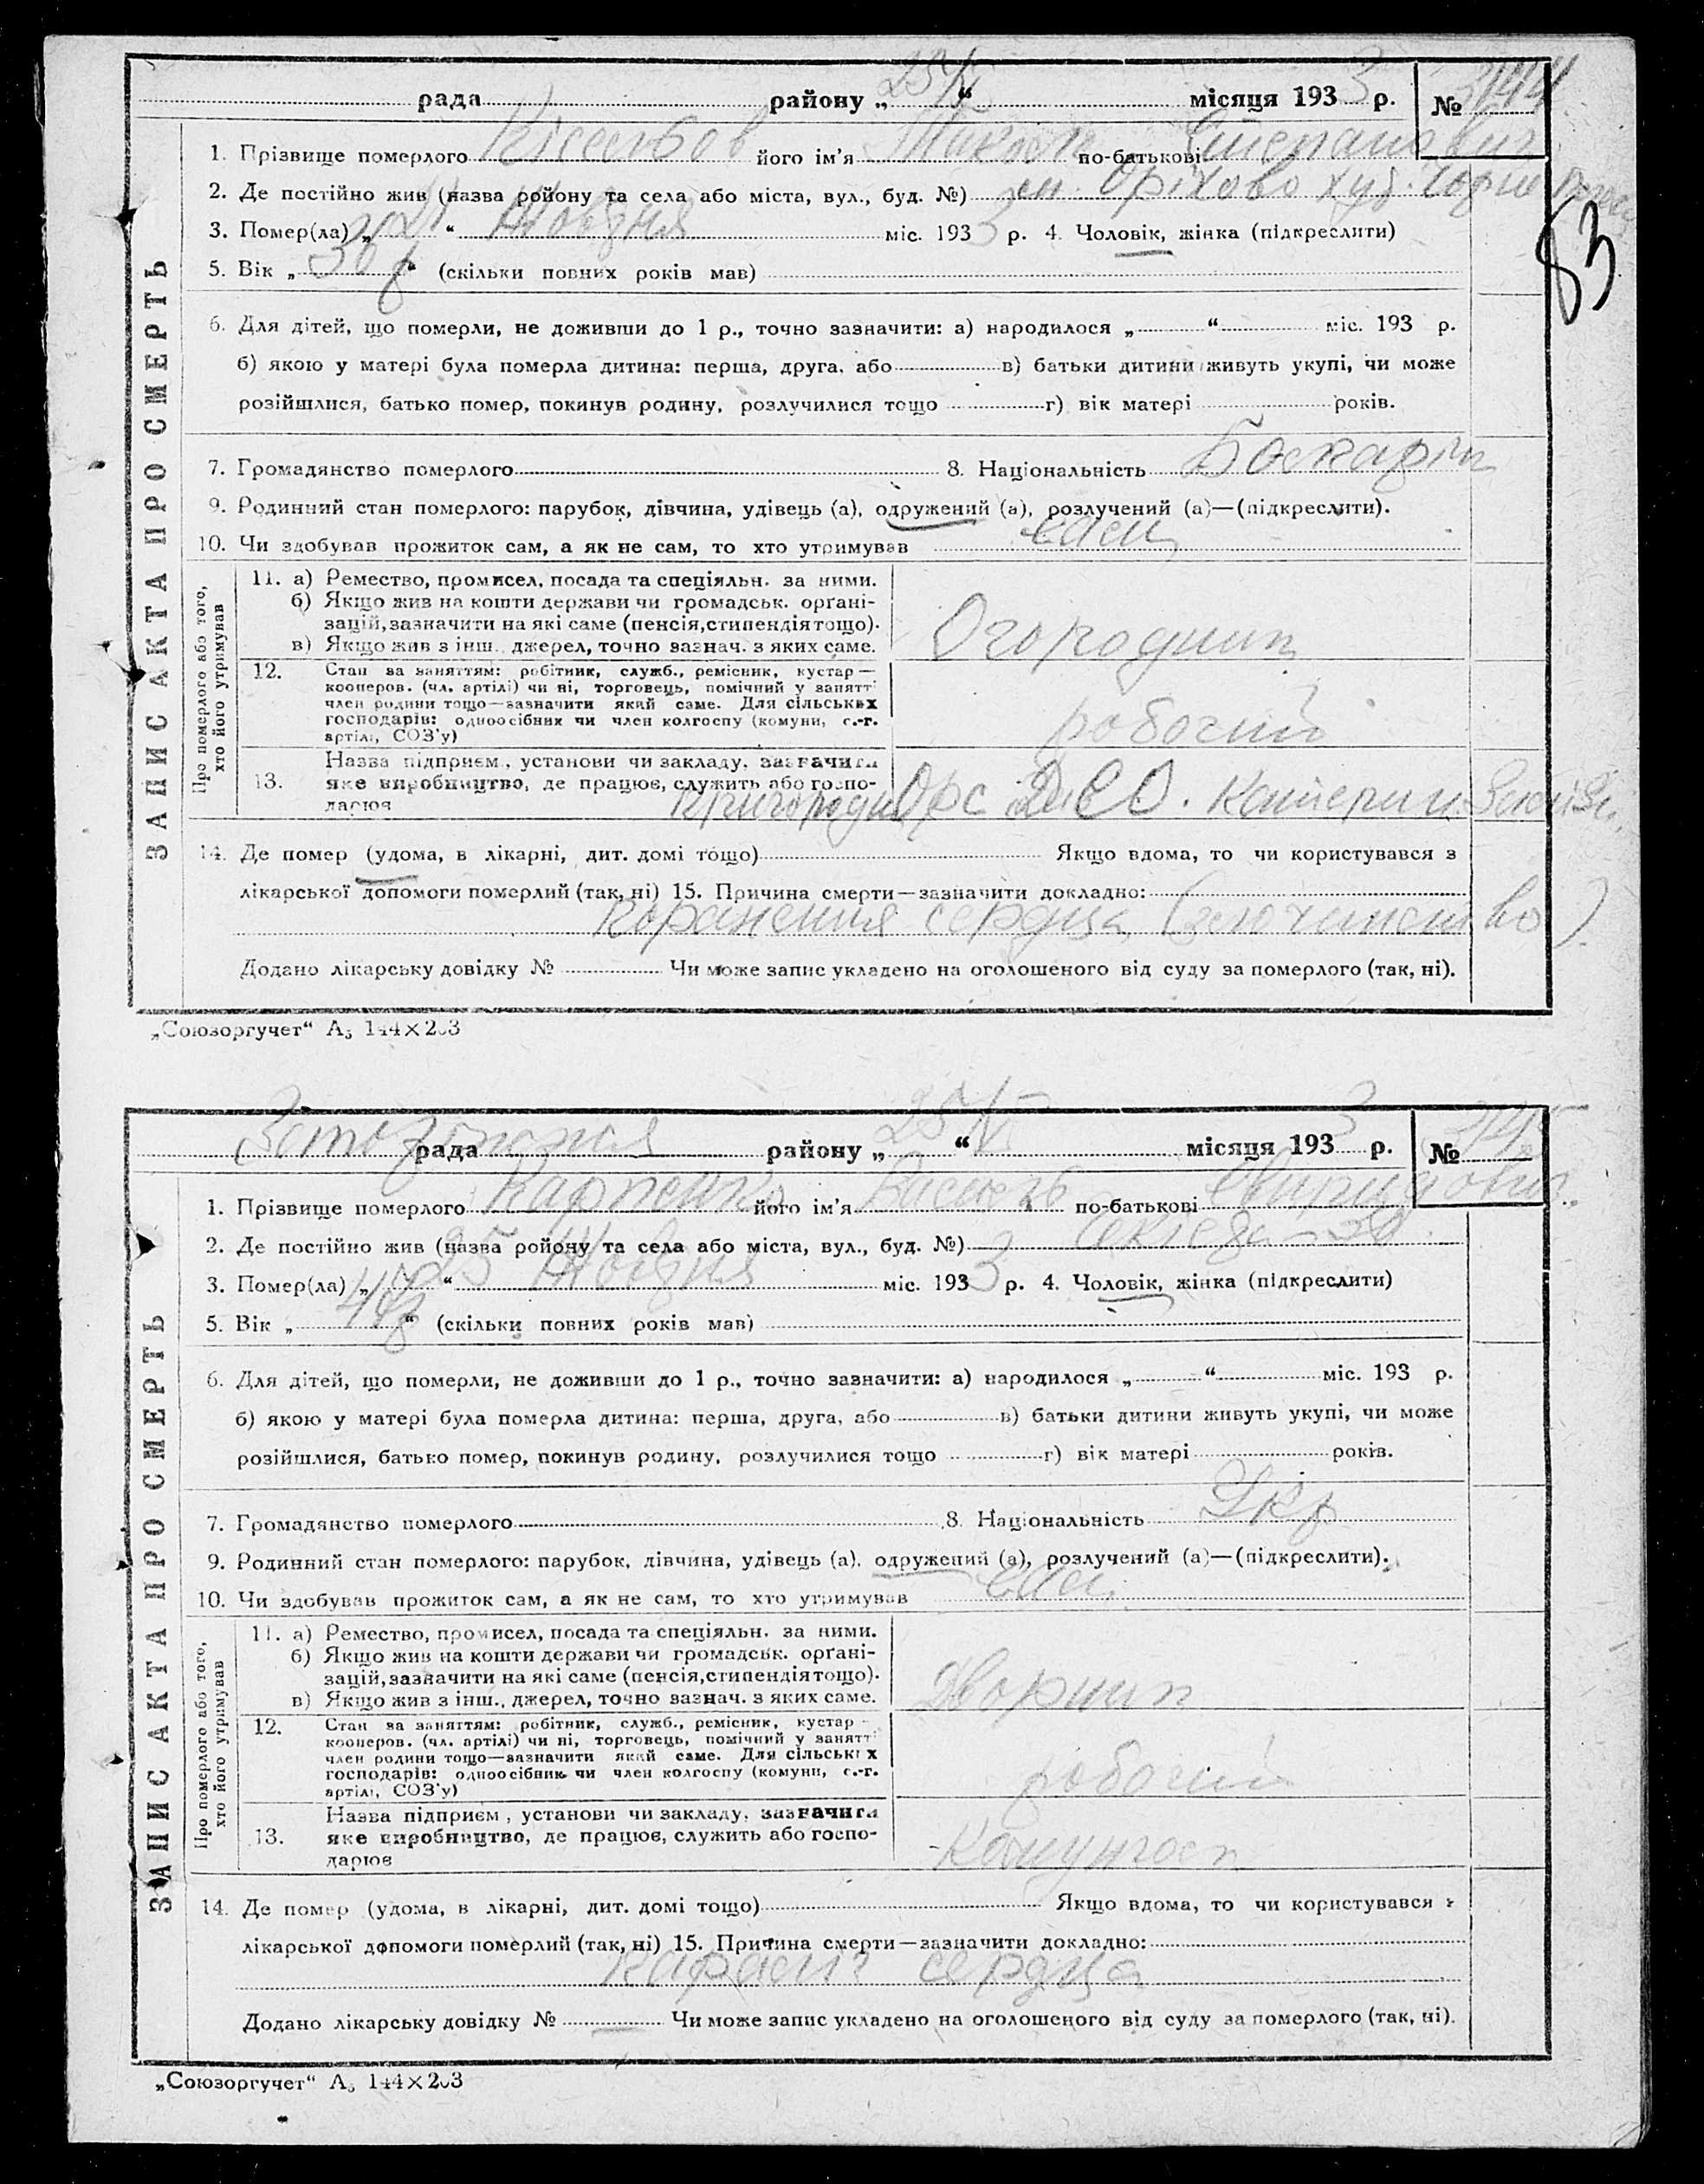 рада району „25/X“ місяця 1933 р. № 3144
1. Прізвище померлого його ім'я по-батькові Степанович
2. Де постійно жив (назва ройону та села або міста, вул., буд. №) ст. Оріхово хут.
3. Помер(ла) „21“ Жовтня міс. 1933 р. 4. Чоловік, жінка (підкреслити)
83
5. Вік „30 р“ (скільки повних років мав)
6. Для дітей, що померли, не доживши до 1 р., точно зазначити: а) народилося „ “ міс. 193 р.
б) якою у матері була померла дитина: перша, друга, або в) батьки дитини живуть укупі, чи може
розійшлися, батько помер, покинув родину, розлучилися тощо г) вік матері років.
7. Громадянство померлого 8. Національність
9. Родинний стан померлого: парубок, дівчина, удівець (а), одружений (а), розлучений (а)—(підкреслити).
10. Чи здобував прожиток сам, а як не сам, то хто утримував сам
ЗАПИС АКТА ПРО СМЕРТЬ
Про померлого або того, хто його утримував
11. а) Ремество, промисел, посада та спеціяльн. за ними.
б) Якщо жив на кошти держави чи громадськ. орґані-
зацій, зазначити на які саме (пенсія, стипендія тощо).
в) Якщо жив з інш. джерел, точно зазнач. з яких саме.
Огородник
12. Стан за заняттям: робітник, служб., ремісник, кустар—
кооперов. (чл. артілі) чи ні, торговець, помічний у занятті
член родини тощо—зазначити який саме. Для сільських
господарів: одноосібник чи член колгоспу (комуни, с.-г.
артілі, СОЗ'у)
робочий
13. Назва підприєм., установи чи закладу, зазначити
яке виробництво, де працює, служить або госпо-
дарює
Орс
14. Де помер (удома, в лікарні, дит. домі тощо) Якщо вдома, то чи користувався з
лікарської допомоги померлий (так, ні) 15. Причина смерти—зазначити докладно:
сердца
Додано лікарську довідку № Чи може запис укладено на оголошеного від суду за померлого (так, ні).
„Союзоргучет“ А₅ 144×203
рада району „25/X“ місяця 1933 р. № 3145
1. Прізвище померлого Карпенко його ім'я Василь по-батькові
2. Де постійно жив (назва ройону та села або міста, вул., буд. №)
3. Помер(ла) „25“ Жовтня міс. 1933 р. 4. Чоловік, жінка (підкреслити)
5. Вік „ “ (скільки повних років мав)
6. Для дітей, що померли, не доживши до 1 р., точно зазначити: а) народилося „ “ міс. 193 р.
б) якою у матері була померла дитина: перша, друга, або в) батьки дитини живуть укупі, чи може
розійшлися, батько помер, покинув родину, розлучилися тощо г) вік матері років.
7. Громадянство померлого 8. Національність Укр
9. Родинний стан померлого: парубок, дівчина, удівець (а), одружений (а), розлучений (а)—(підкреслити).
10. Чи здобував прожиток сам, а як не сам, то хто утримував сам
ЗАПИС АКТА ПРО СМЕРТЬ
Про померлого або того, хто його утримував
11. а) Ремество, промисел, посада та спеціяльн. за ними.
б) Якщо жив на кошти держави чи громадськ. орґані-
зацій, зазначити на які саме (пенсія, стипендія тощо).
в) Якщо жив з інш., джерел, точно зазнач. з яких саме.
Дворник
12. Стан за заняттям: робітник, служб., ремісник, кустар-
кооперов. (чл. артілі) чи ні, торговець, помічний у занятті
член родини тощо—зазначити який саме. Для сільських
господарів: одноосібник чи член колгоспу (комуни, с.-г.
артілі, СОЗ'у)
робочий
13. Назва підприєм., установи чи закладу, зазначити
яке виробництво, де працює, служить або госпо-
дарює
Комунгосп
14. Де помер (удома, в лікарні, дит. домі тощо) Якщо вдома, то чи користувався з
лікарської допомоги померлий (так, ні) 15. Причина смерти—зазначити докладно:
сердца
Додано лікарську довідку № Чи може запис укладено на оголошеного від суду за померлого (так, ні).
„Союзоргучет“ А₅ 144×203